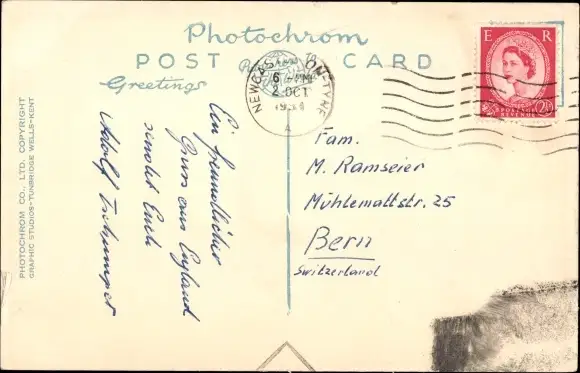 Photochrom
POST CARD
Greetings
Ein freundlicher
Gruss aus England
sendet Euch
Adolf
PHOTOCHROM CO., LTD. COPYRIGHT
GRAPHIC STUDIOS-TUNBRIDGE WELLS-KENT
NEWCASTLE ON-TYNE
6
2 OCT
A
E R
POSTAGE
REVENUE
2½
Fam.
M. Ramseier
Mühlemattstr. 25
Bern
Switzerland